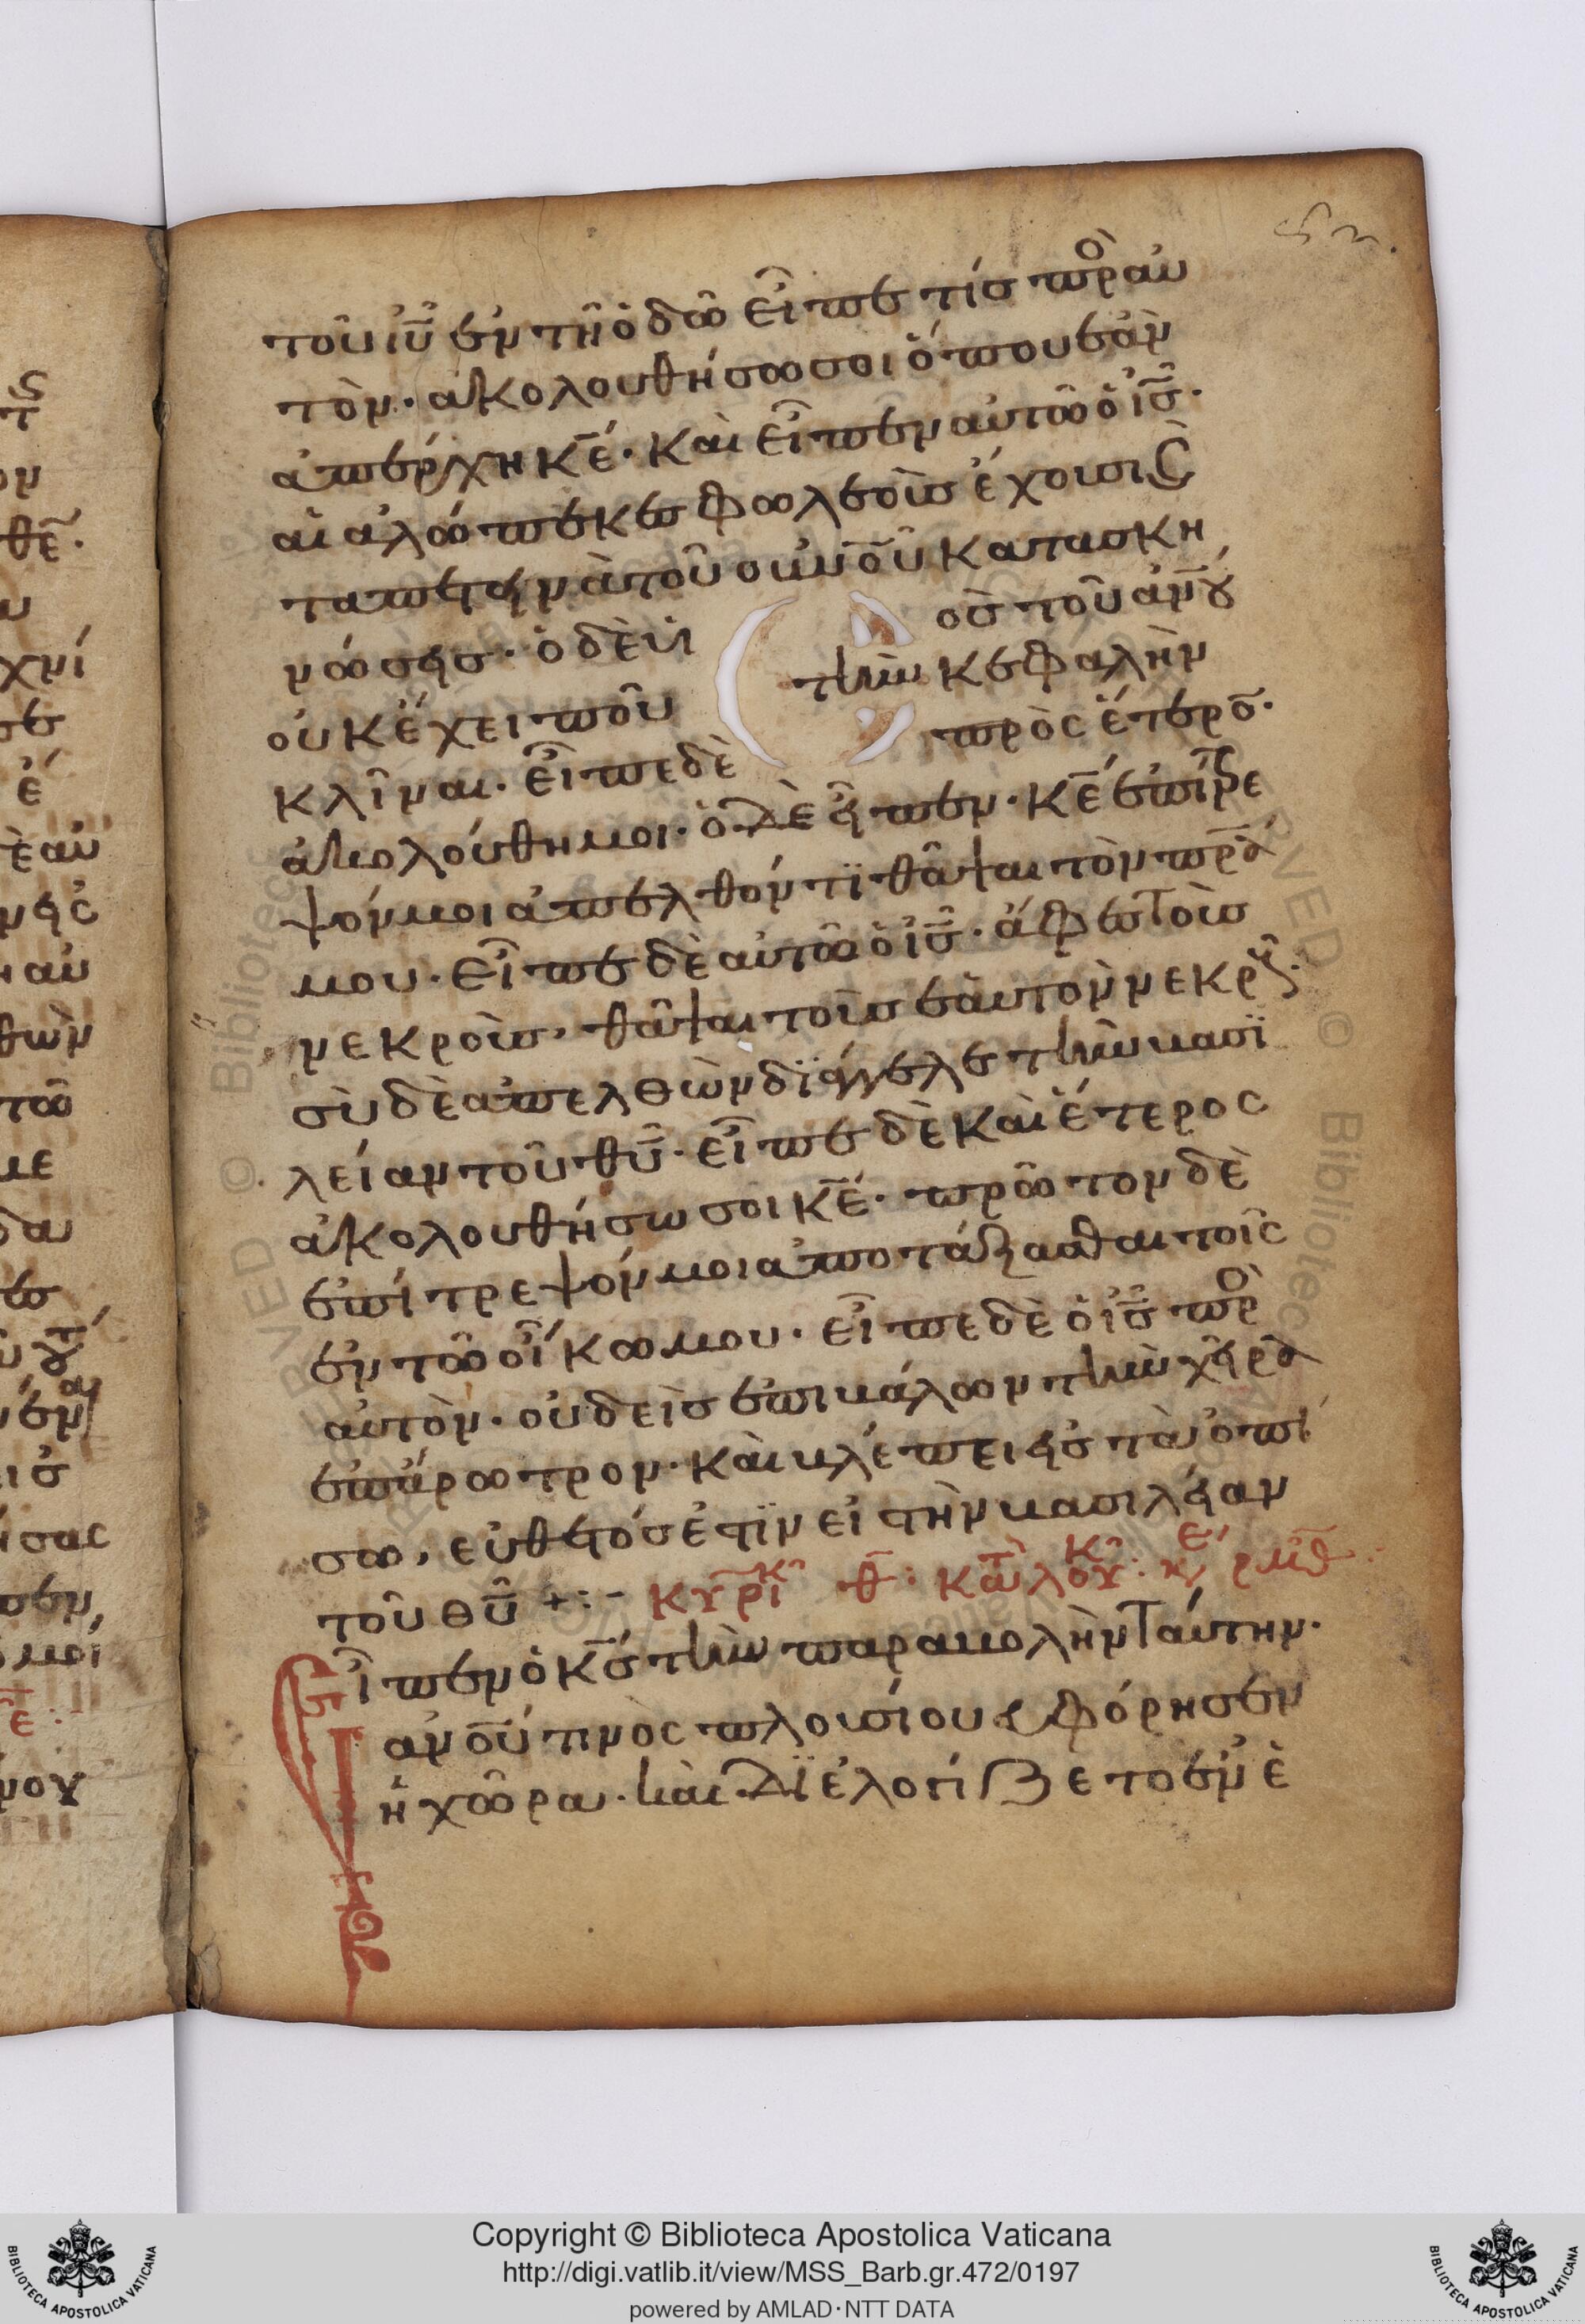 τοῦ ἰῦ ἐν τῆ ὁδῶ εἶπε τίσ πρὸ αυ
τὸν· ἀκολουθήσω σοι ὅπου ἐὰν
ἀπέρχη κέ· καὶ εἶπεν αὐτῶ ὁ ἰσ·
αἱ ἀλώπεκεσ φωλεοὺσ ἔχουσι (καὶ)
τὰ πετεινὰ τοῦ οὐνοῦ κατασκη
νώσεισ· ὁ δὲ ὑι οσ τοῦ ἀνου
οὐκ ἔχει ποῦ τὴν κεφαλὴν
κλῖναι· εἶπε δὲ πρὸς ἕτερο·
ἀκολούθη μοι· ὁ δὲ εἶπεν· κέ ἐπίτρε
ψόν μοι ἀπελθόντϊ θάψαι τὸν πρα
μου· εἶπε δὲ αὐτῶ ὁ ἰσ· ἄφεσ τοὺσ
νεκροὺσ, θάψαι τοὺσ ἑαυτὸν νεκρ·
σὺ δὲ ἀπελθὼν δϊάγγελε τὴν βασϊ
λείαν τοῦ θυ· εἶπε δὲ καὶ ἕτερος
ἀκολουθήσω σοι κέ· πρῶτον δὲ
ἐπίτρεψόν μοι ἀποτάξασθαι τοῖς
ἐν τῶ οἴκω μου· εἶπε δὲ ὁ ἰσ πρὸ
αὐτὸν· οὐδεὶσ ἐπιβάλων τὴν χεῖρα
ἐπάρωτρον· καὶ βλέπει εἰσ τὰ ὀπί
σω, εὔθετόσ ἐστϊν εἰ τὴν βασιλείαν
τοῦ θυ +:- κυρϊκ θ: κατ λουκ: κε ρμθ
Εἶπεν ὁ κσ τὴν παραβολὴν ταύτην·
ἀνου τινὸς πλουσίου εὐφόρησεν
ἡ χώρα· καὶ δϊελογίζετο ἐν ἑ
Copyright © Biblioteca Apostolica Vaticana
http://digi.vatlib.it/view/MSS_Barb.gr.472/0197
powered by AMLAD·NTT DATA
BIBLIOTECA APOSTOLICA VATICANA
BIBLIOTECA APOSTOLICA VATICANA